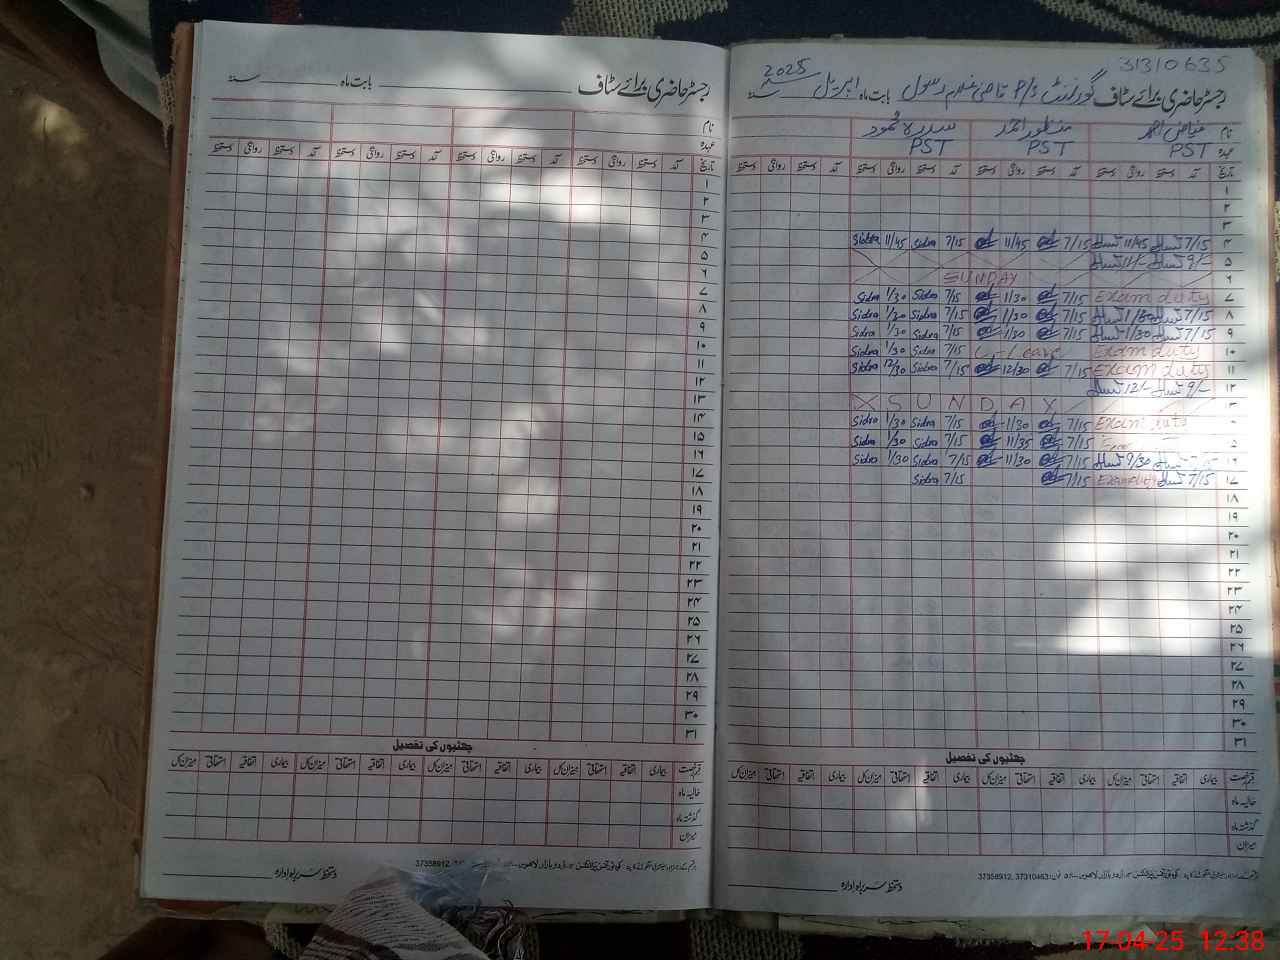 31310635
رجسٹر حاضری برائے سٹاف گورنمنٹ P/S قاضی غلام رسول بابت ماہ اپریل سنہ 2025
نام فیاض احمد منظور احمد سدرہ محمود
عہدہ PST PST PST
تاریخ آمد دستخط روانگی دستخط آمد دستخط روانگی دستخط آمد دستخط روانگی دستخط آمد دستخط روانگی دستخط
۱
۲
۳
۴ 7/15 11/45 7/15 11/45 7/15 Sidra 11/45 Sidra
۵ 9/- 11/-
۶ SUNDAY
۷ Exam duty 7/15 1/30 7/15 Sidra 1/30 Sidra
۸ 7/15 7/15 1/30 7/15 Sidra 1/30 Sidra
۹ 7/15 1/30 7/15 1/30 7/15 Sidra 1/30 Sidra
۱۰ Exam duty 7/15 Sidra 1/30 Sidra
۱۱ Exam duty 7/15 12/30 7/15 Sidra 12/30 Sidra
۱۲ 9/- 12/-
۱۳ SUNDAY
Exam duty 7/15 1/30 7/15 Sidra 1/30 Sidra
۵ 7/15 11/35 7/15 Sidra 1/30 Sidra
۱۶ 9/30 7/15 11/30 7/15 Sidra 1/30 Sidra
۱۷ 7/15 Exam duty 7/15 7/15 Sidra
۱۸
۱۹
۲۰
۲۱
۲۲
۲۳
۲۴
۲۵
۲۶
۲۷
۲۸
۲۹
۳۰
۳۱
چھٹیوں کی تفصیل
قسم رخصت بیماری اتفاقیہ استحقاقی میزان کل بیماری اتفاقیہ استحقاقی میزان کل بیماری اتفاقیہ استحقاقی میزان کل بیماری اتفاقیہ استحقاقی میزان کل
حالیہ ماہ
گذشتہ ماہ
میزان
اردو بازار لاہور فون: 37310463, 37358912
دستخط سربراہ ادارہ
رجسٹر حاضری برائے سٹاف بابت ماہ سنہ
نام
عہدہ
تاریخ آمد دستخط روانگی دستخط آمد دستخط روانگی دستخط آمد دستخط روانگی دستخط آمد دستخط روانگی دستخط
۱
۲
۳
۴
۵
۶
۷
۸
۹
۱۰
۱۱
۱۲
۱۳
۱۴
۱۵
۱۶
۱۷
۱۸
۱۹
۲۰
۲۱
۲۲
۲۳
۲۴
۲۵
۲۶
۲۷
۲۸
۲۹
۳۰
۳۱
چھٹیوں کی تفصیل
قسم رخصت بیماری اتفاقیہ استحقاقی میزان کل بیماری اتفاقیہ استحقاقی میزان کل بیماری اتفاقیہ استحقاقی میزان کل بیماری اتفاقیہ استحقاقی میزان کل
حالیہ ماہ
گذشتہ ماہ
میزان
اردو بازار لاہور 37358912
دستخط سربراہ ادارہ
17-04-25 12:38